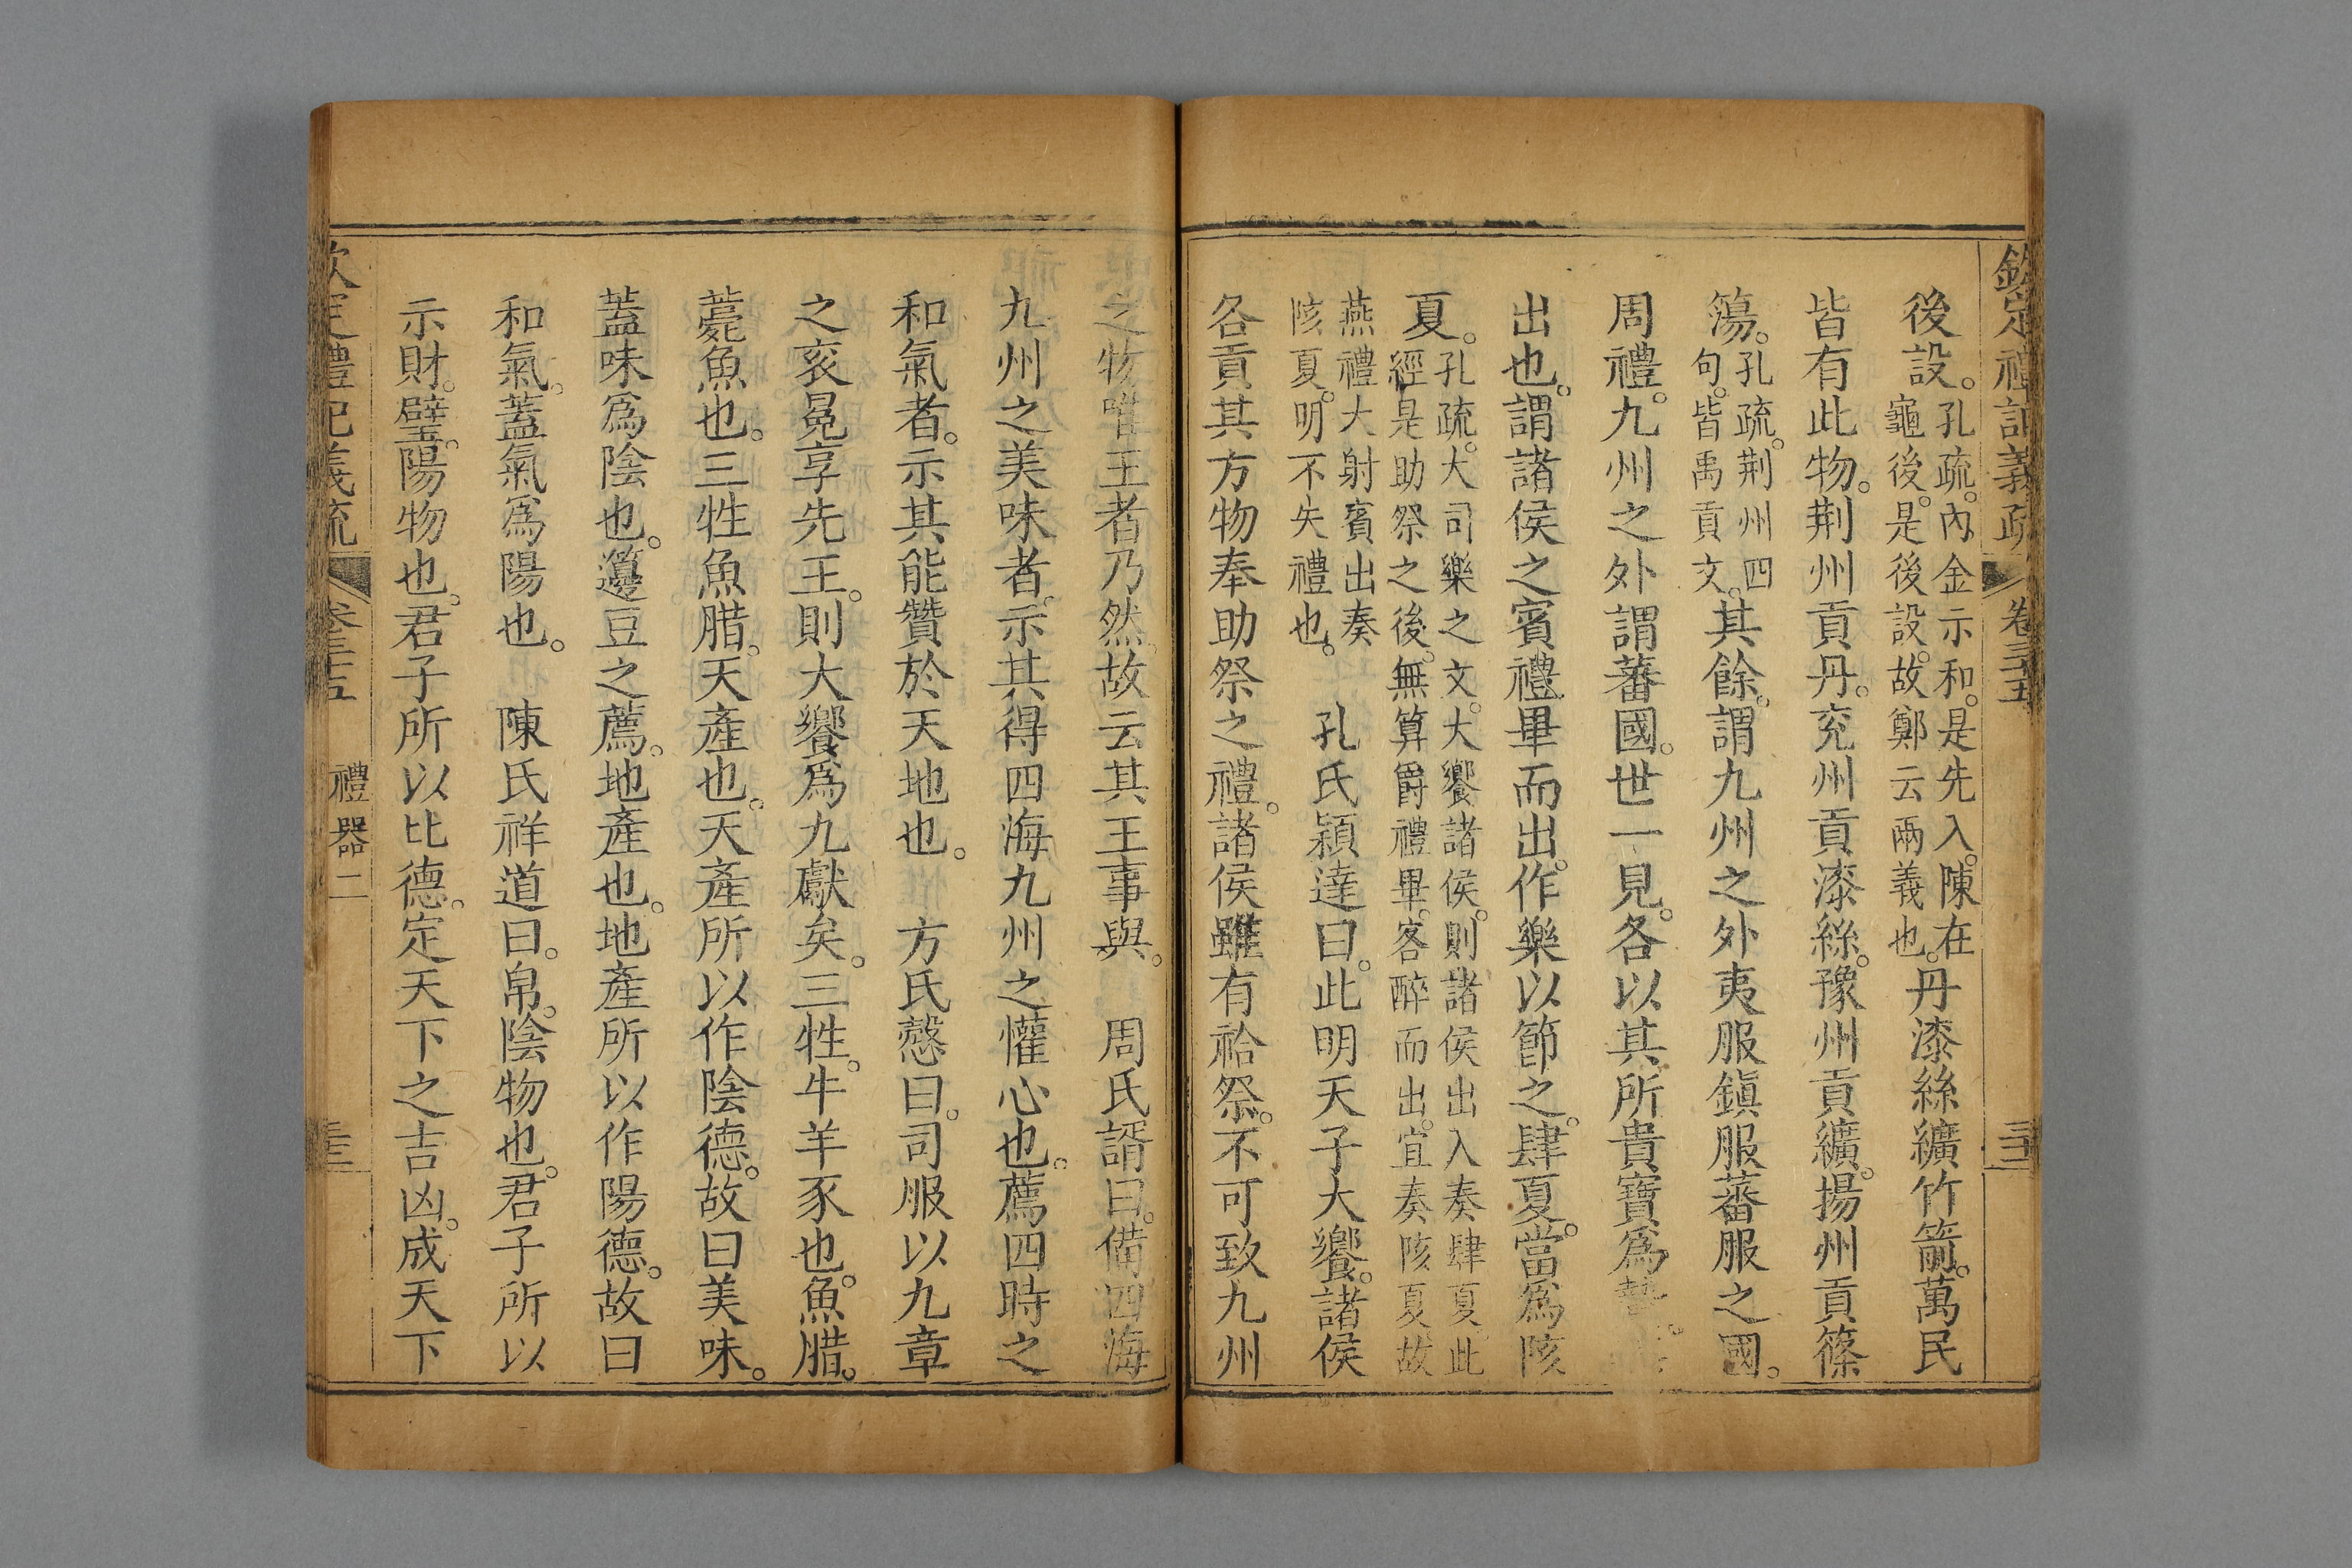 欽定禮記義疏 卷三十五
後設。孔疏。內金示和。是先入。陳在
龜後。是後設。故鄭云兩義也。丹漆絲纊竹箭。萬民
皆有此物。荆州貢丹。兖州貢漆絲。豫州貢纊。揚州貢篠
簜。孔疏。荆州四
句。皆禹貢文。其餘。謂九州之外夷服鎭服蕃服之國。
周禮。九州之外謂蕃國。世一見。各以其所貴寶爲摯。
出也。謂諸侯之賓禮畢而出。作樂以節之。肆夏。當爲陔
夏。孔疏。大司樂之文。大饗諸侯。則諸侯出入奏肆夏。此
經是助祭之後。無算爵禮畢。客醉而出。宜奏陔夏。故
燕禮大射賓出奏
陔夏。明不失禮也。 孔氏穎達曰。此明天子大饗。諸侯
各貢其方物奉助祭之禮。諸侯雖有祫祭。不可致九州
之物唯王者乃然。故云其王事與。 周氏諝曰。備四海
九州之美味者。示其得四海九州之懽心也。薦四時之
和氣者。示其能贊於天地也。 方氏慤曰。司服以九章
之衮冕享先王。則大饗爲九獻矣。三牲。牛羊豕也。魚腊。
薧魚也。三牲魚腊。天產也。天產所以作陰德。故曰美味。
蓋味爲陰也。籩豆之薦。地產也。地產所以作陽德。故曰
和氣。蓋氣爲陽也。 陳氏祥道曰。帛。陰物也。君子所以
示財。璧。陽物也。君子所以比德。定天下之吉凶。成天下
欽定禮記義疏 卷三十五 禮器二